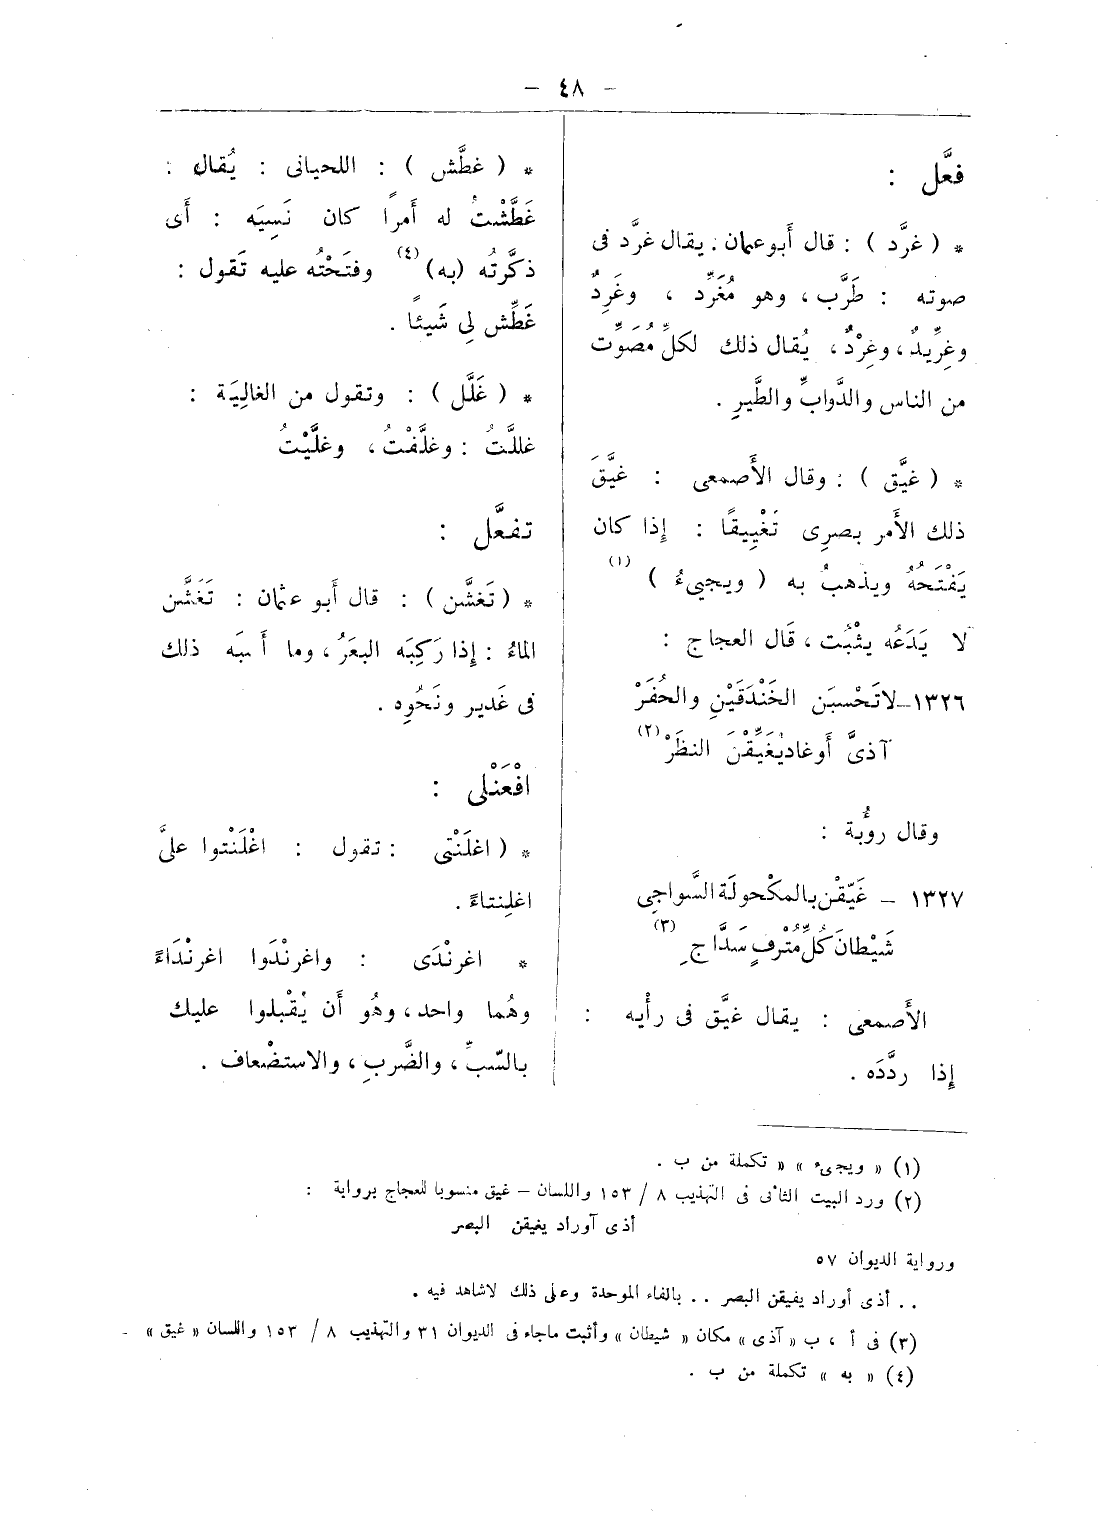 – ٤٨ –
فعَّل :
* ( غرَّد ) : قال أَبو عثمان . يقال غرَّد فى
صوته : طَرَّب ، وهو مُغَرِّد ، وغَرِدٌ
وغِرِّيدٌ ، وغِرْدٌ ، يُقال ذلك لكلِّ مُصَوِّت
من الناس والدَّوابِّ والطَّيرِ .
* ( غيَّق ) : وقال الأَصمعى : غيَّقَ
ذلك الأَمر بصرِى تَغْيِيقًا : إِذا كان
يَفْتَحُهُ ويذهبُ به ( ويجيءُ ) (١)
لا يَدَعُه يثْبُت ، قَال العجاج :
١٣٢٦ – لاتَحْسبَن الخَنْدَقَيْنِ والحُفَرْ
آذىَّ أَوغاديُغَيِّقْنَ النظَرْ (٢)
وقال رؤُبة :
١٣٢٧ – غَيَّقْن بالمكْحولَة السَّواجِى
شَيْطانَ كُلِّ مُتْرفٍ سَدَّاجِ (٣)
الأَصمعى : يقال غيَّق فى رأْيه :
إِذا ردَّدَه .
* ( غطَّش ) : اللحيانى : يُقال :
غَطَّشْتُ له أَمرًا كان نَسِيَه : أَى
ذكَّرتُه (به) (٤) وفتَحْتُه عليه تَقول :
غَطِّش لِى شَيئًا .
* ( غَلَّل ) : وتقول من الغالِيَة :
غللَّتُ : وغلَّفْتُ ، وغلَّيْتُ
تفعَّل :
* ( تَغشَّن ) : قال أَبو عثمان : تَغَشَّن
الماءُ : إِذا رَكِبَه البعَرُ ، وما أَشبَه ذلك
فى غَدير ونَحْوِه .
افْعَنْلى :
* ( اغلَنْتى : تقول : اغْلَنْتوا علىَّ
اغلِنتاءً .
* اغرنْدَى : واغرنْدَوا اغرنْدَاءً
وهُما واحد ، وهُو أَن يُقْبلوا عليك
بالسّبِّ ، والضَّربِ ، والاستضْعاف .
(١) « ويجىء » « تكملة من ب .
(٢) ورد البيت الثانى فى التهذيب ٨ / ١٥٣ واللسان – غيق منسوبا للعجاج برواية :
أذى آوراد يغيقن البصر
ورواية الديوان ٥٧
. . أذى أوراد يفيقن البصر . . بالفاء الموحدة وعلى ذلك لاشاهد فيه .
(٣) فى أ ، ب « آذى » مكان « شيطان » وأثبت ماجاء فى الديوان ٣١ والتهذيب ٨ / ١٥٣ واللسان « غيق » –
(٤) « به » تكملة من ب .